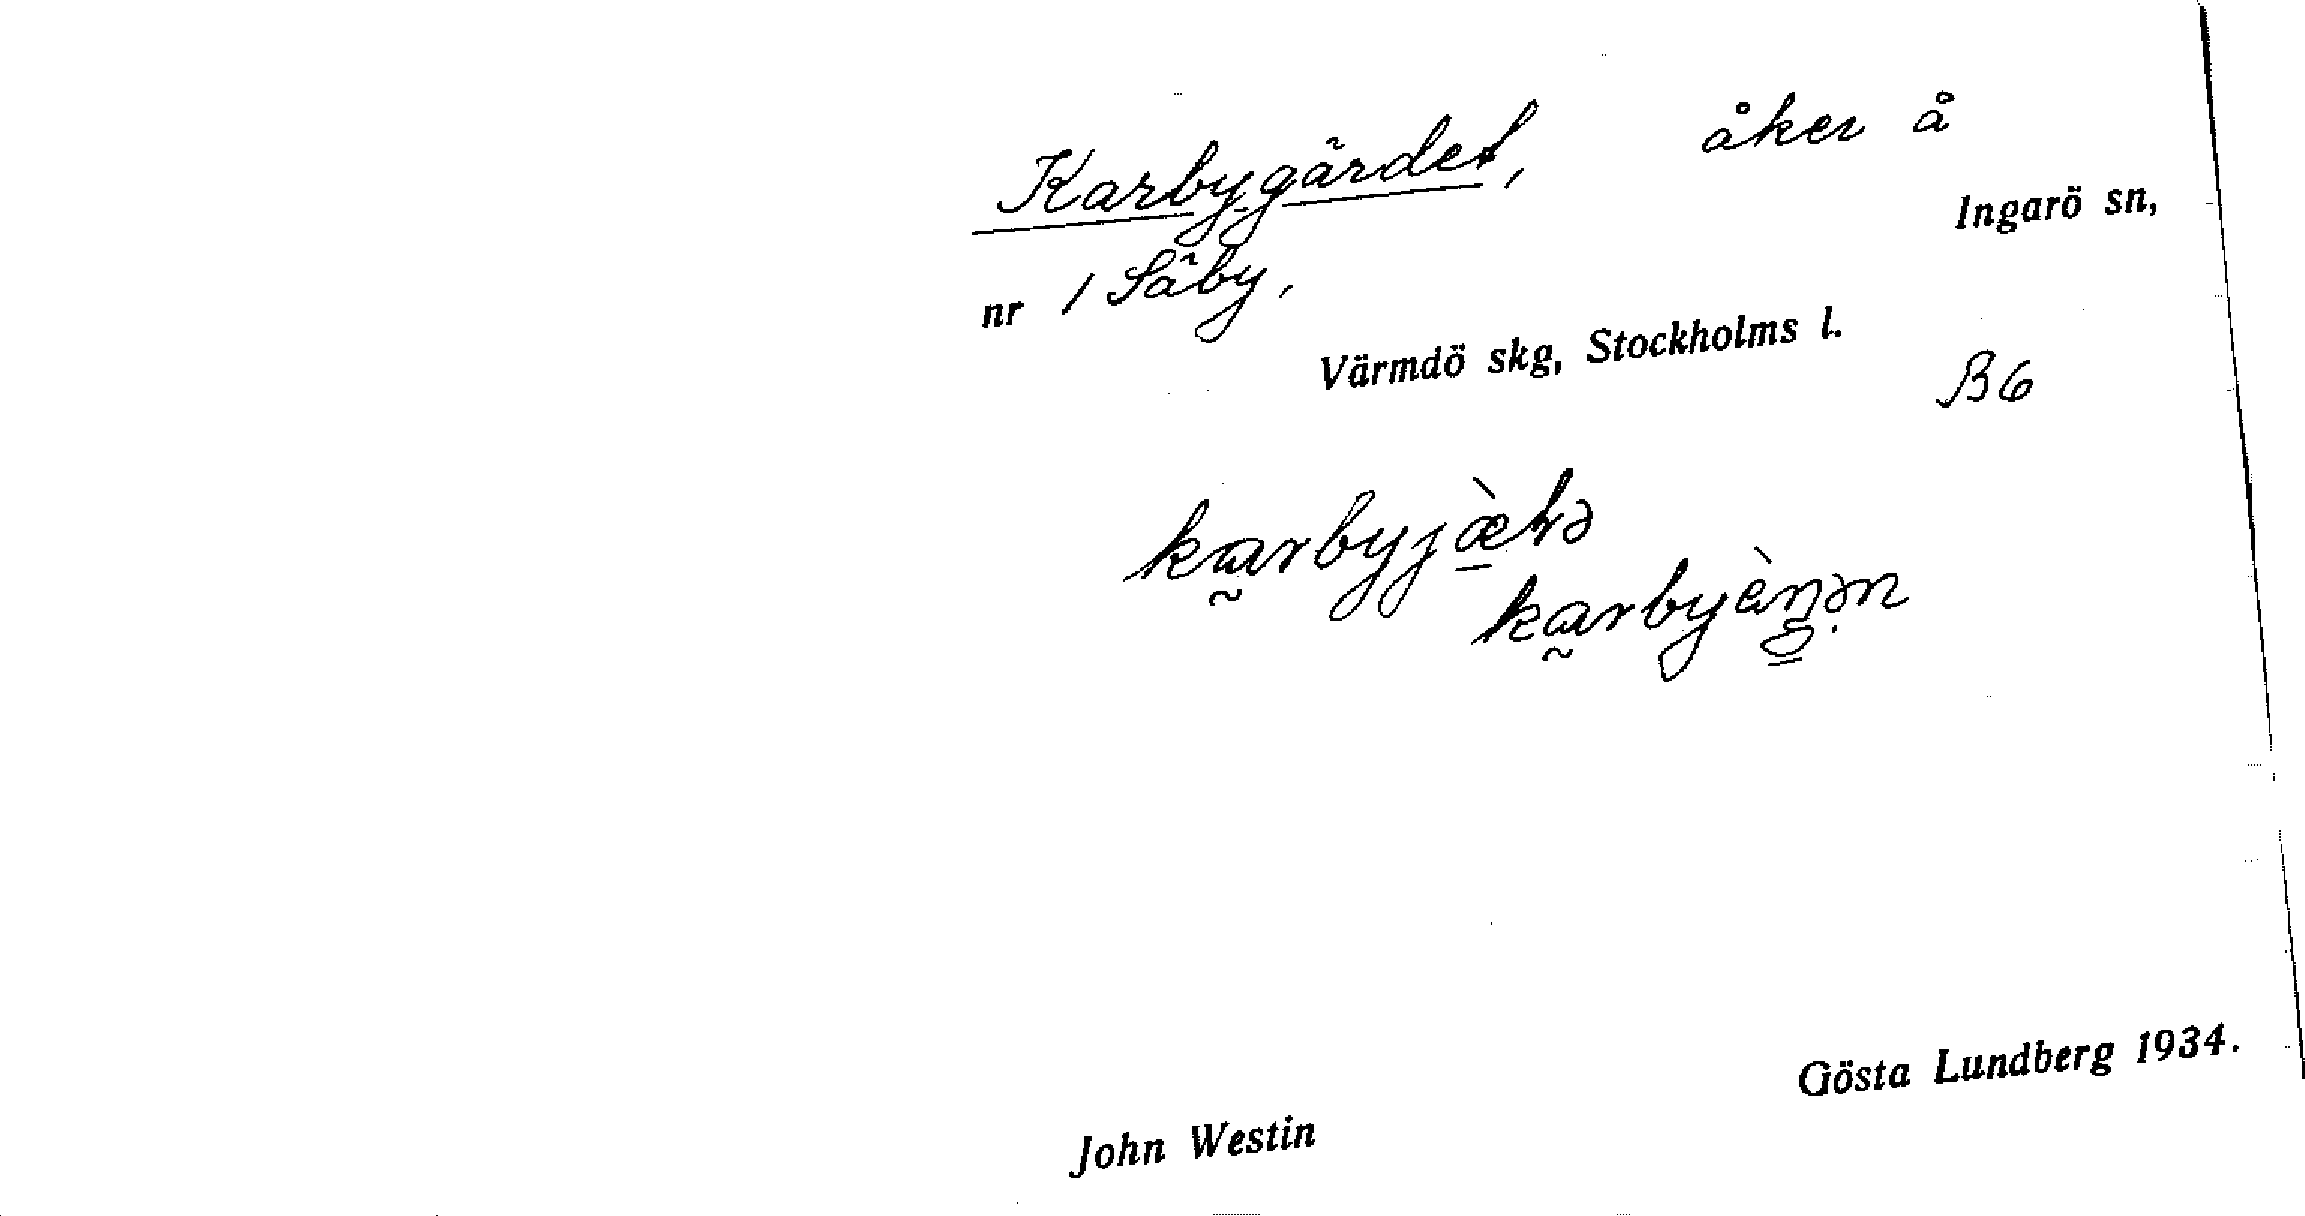 Karbygärdet, åker å
Ingarö sn,
nr 1 Säby,
Värmdö skg, Stockholms l.
B6
ka̰rbyjæ̀tə
ka̰rbyèŋən
Gösta Lundberg 1934.
John Westin